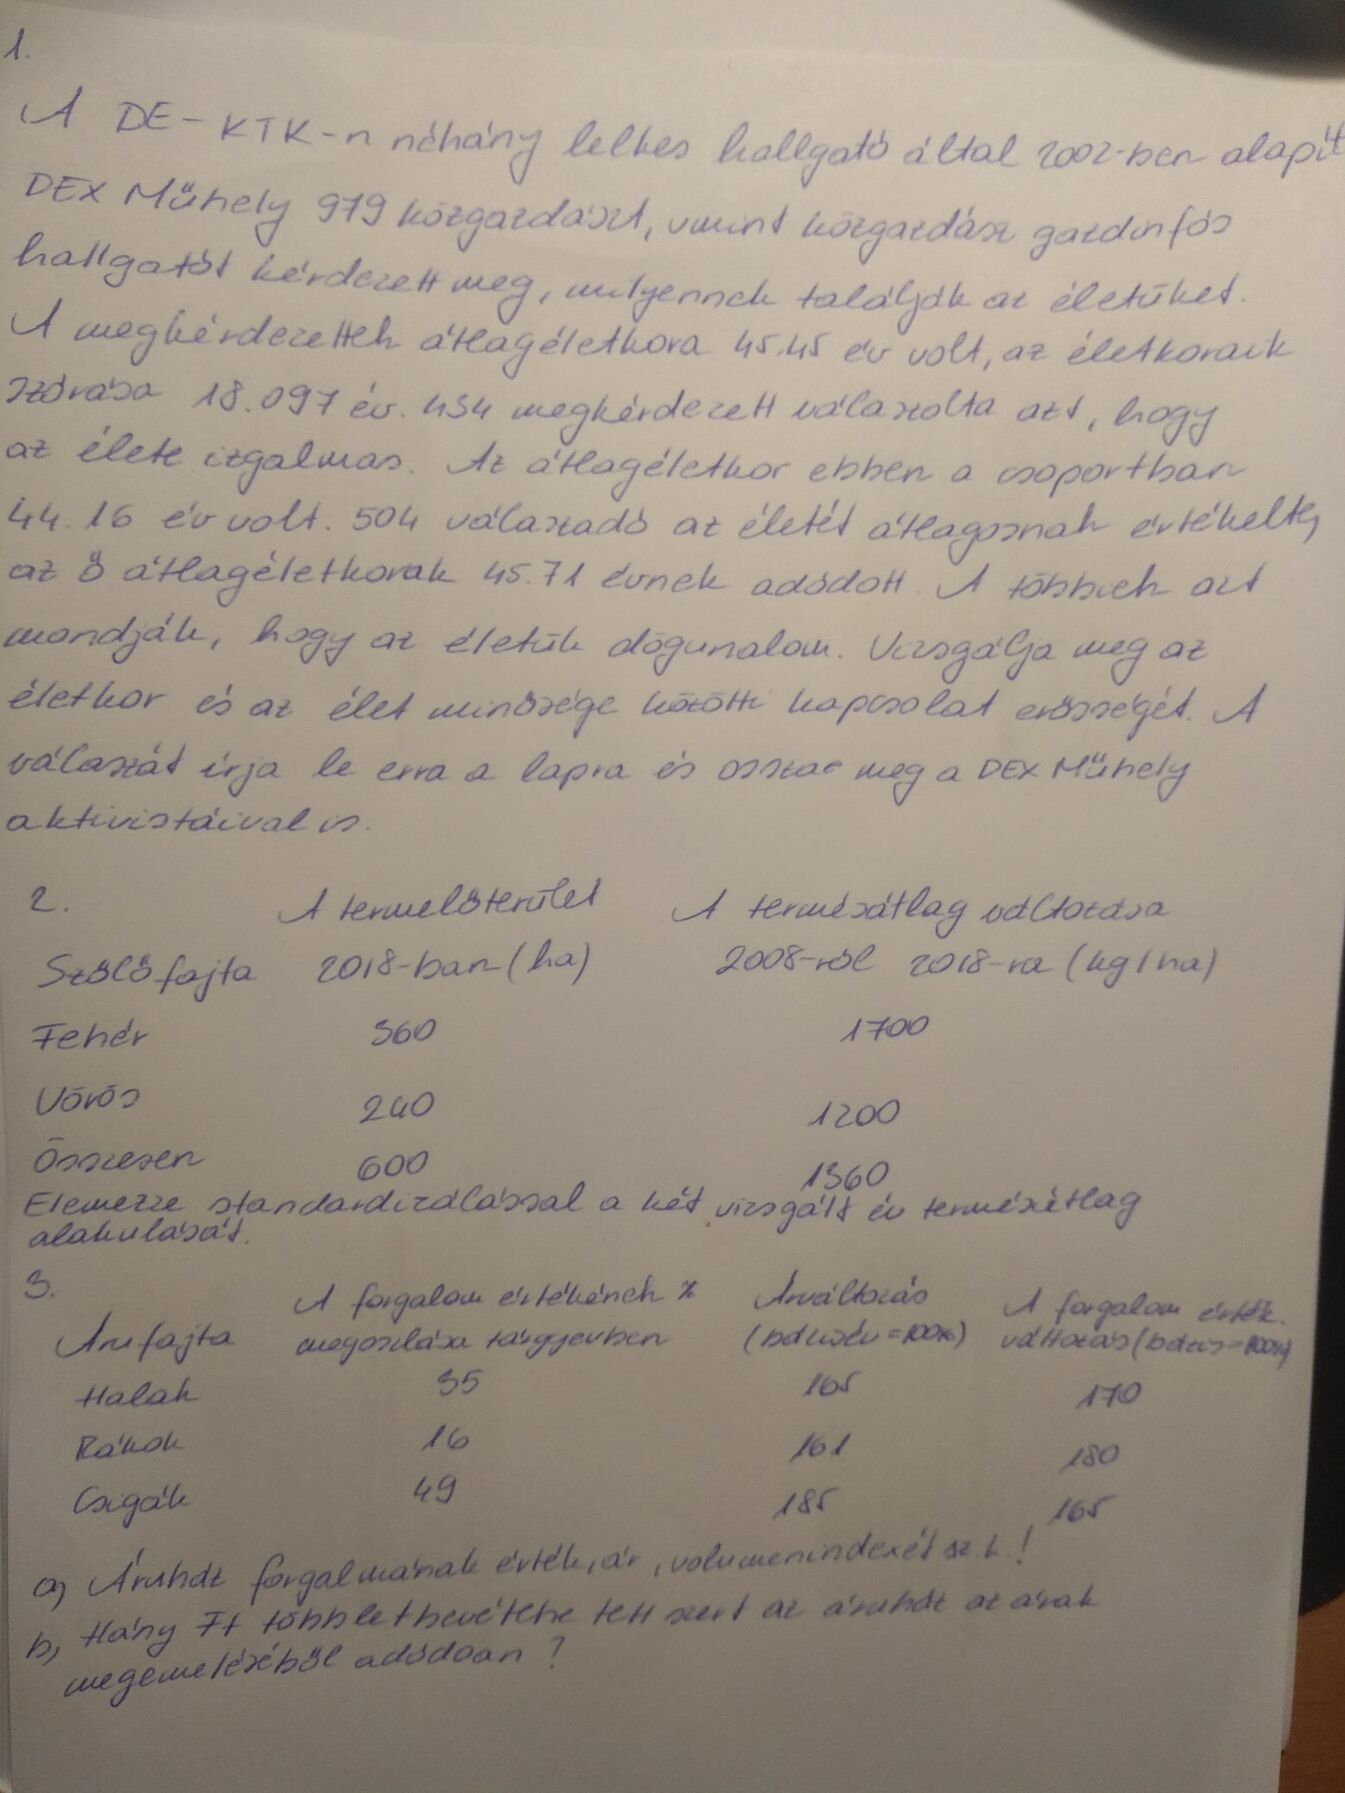 1.
A DE-KTK-n néhány lelkes hallgató által 2002-ben alapít
DEX Műhely 979 közgazdászt, vmint közgazdász gazdinfós
hallgatót kérdezett meg, milyennek találják az életüket.
A megkérdezettek átlagéletkora 45.45 év volt, az életkoraik
szórása 18.097 év. 434 megkérdezett válaszolta azt, hogy
az élete izgalmas. Az átlagéletkor ebben a csoportban
44.16 év volt. 504 válaszadó az életét átlagosnak értékelte,
az ő átlagéletkorak 45.71 évnek adódott. A többiek azt
mondják, hogy az életük dögunalom. Vizsgálja meg az
életkor és az élet minősége közötti kapcsolat erősségét. A
válaszát írja le erra a lapra és ossza meg a DEX Műhely
aktivistáival is.
2. A termelőterület A termésátlag változása
Szőlőfajta 2018-ban (ha) 2008-ról 2018-ra (kg/ha)
Fehér 360 1700
Vörös 240 1200
Összesen 600 1360
Elemezze standardizálással a két vizsgált év termésátlag
alakulását.
3. A forgalom értékének % Árváltozás A forgalom érték.
Árufajta megoszlása tárgyévben (bázisév=100%) változás (bázis=100%)
Halak 35 165 170
Rákok 16 161 180
Csigák 49 185 165
a, Áruház forgalmának érték, ár, volumenindexét sz.k.!
b, Hány Ft többletbevételre tett szert az áruház az árak
megemeléséből adódóan?